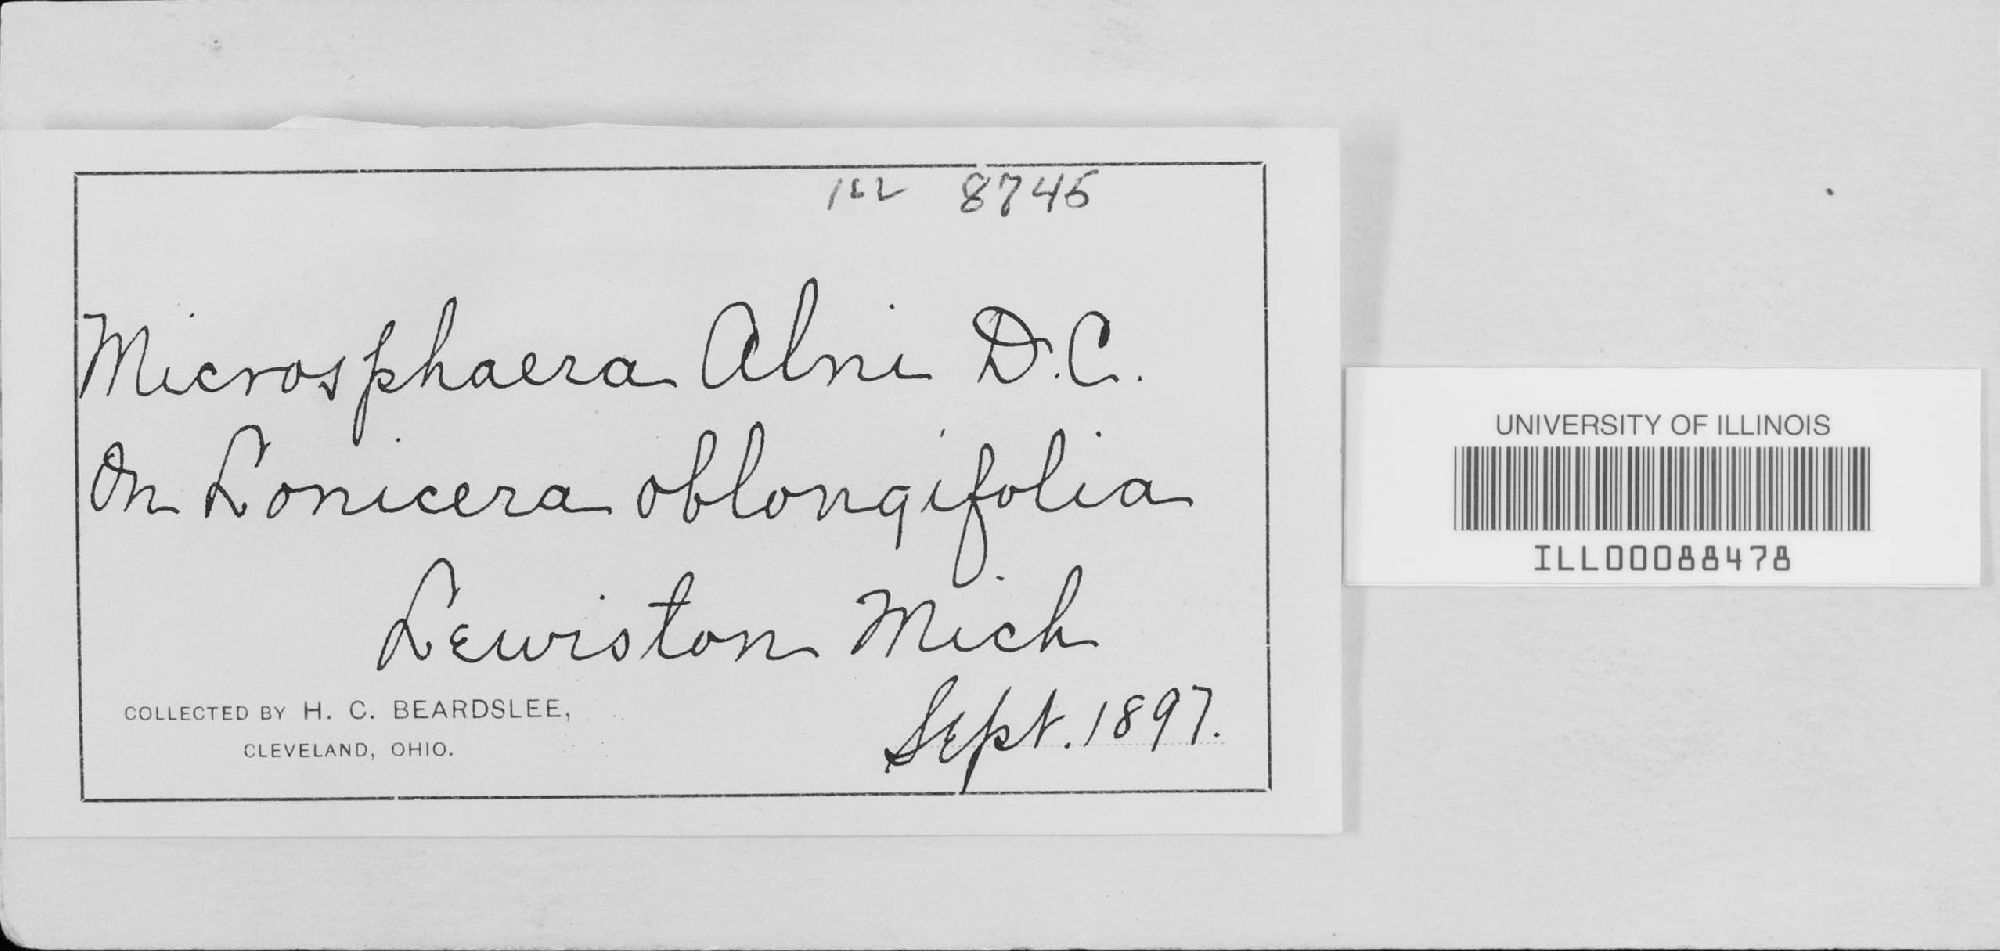 ILL 8745
Microsphaera Alni D.C.
On Lonicera oblongifolia
Lewiston Mich
Sept. 1897.
COLLECTED BY H. C. BEARDSLEE,
CLEVELAND, OHIO.
UNIVERSITY OF ILLINOIS
ILL00088478